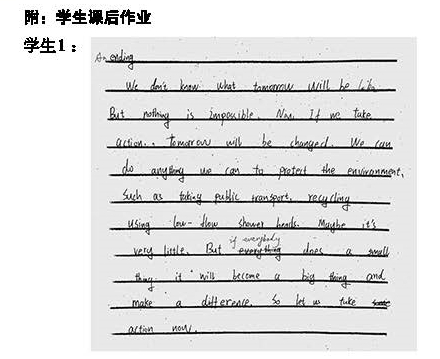 附：学生课后作业
学生1：
An ending
We don't know what tomorrow will be like
But nothing is impossible. Now, If we take
action.. Tomorrow will be changed. We can
do anything we can to protect the environment,
Such as taking public transport, recycling
using low-flow shower heads. Maybe it's
very little. But if everybody does a small
thing it will become a big thing and
make a difference. So let us take
action now.